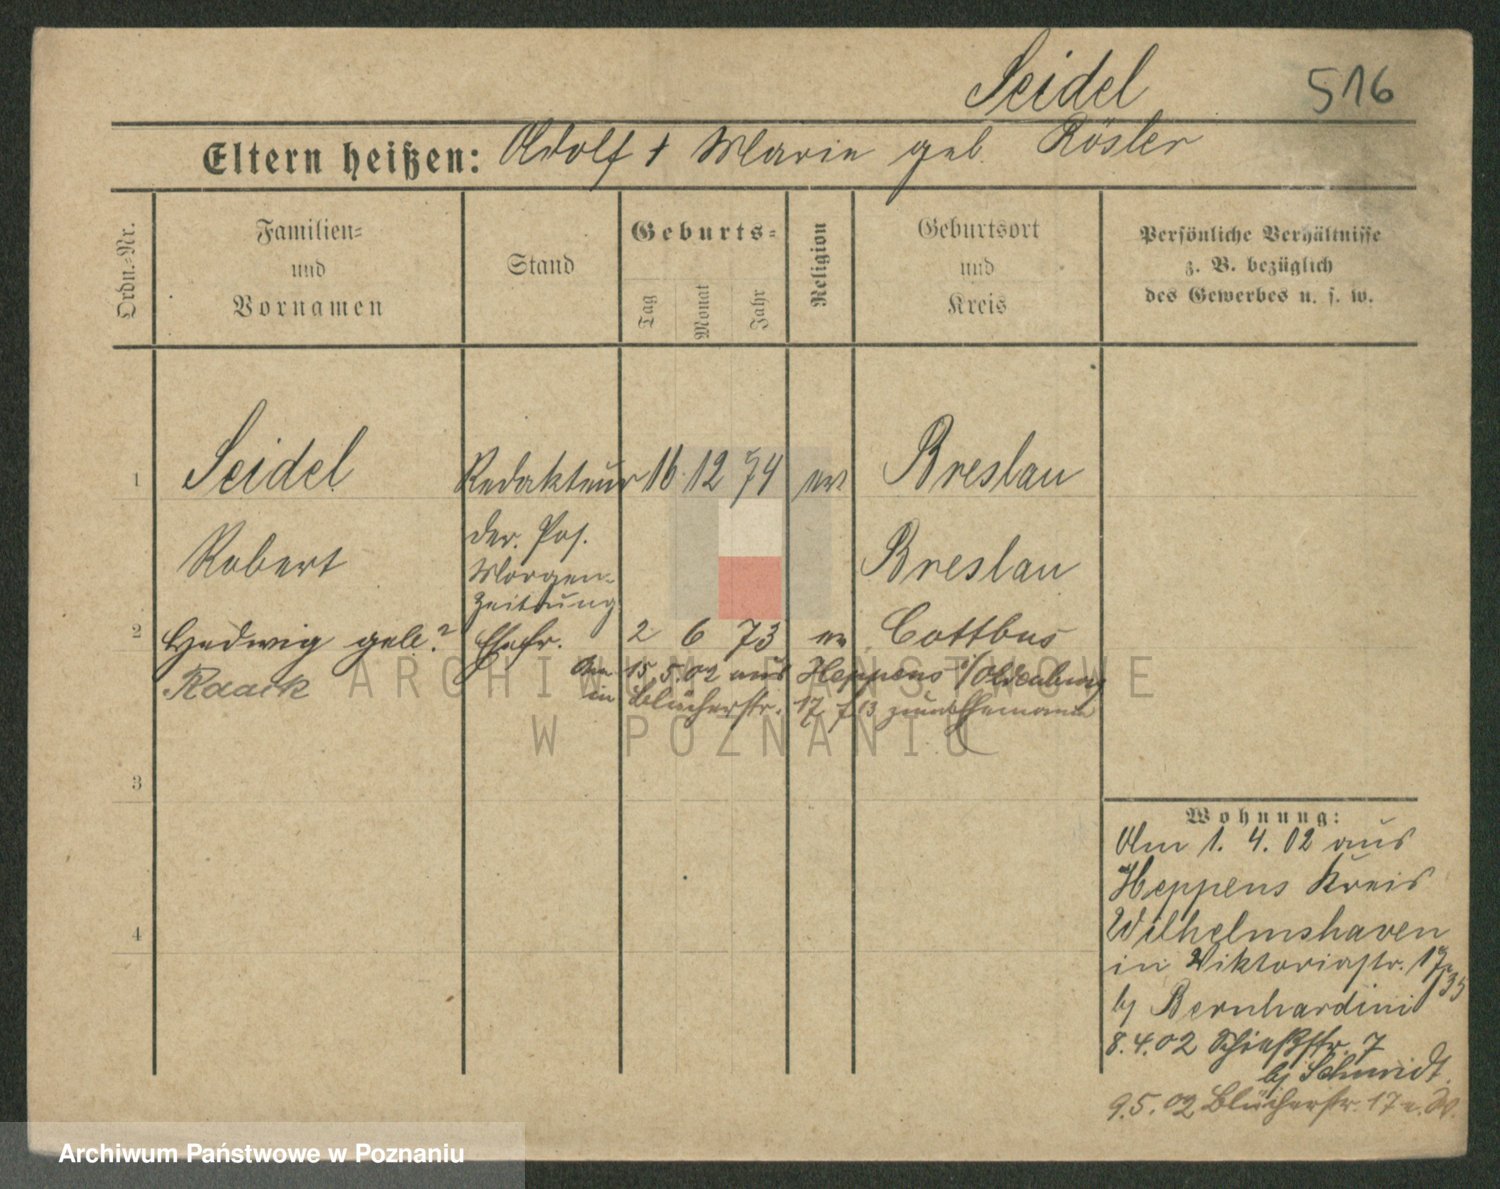 Seidel 516
Eltern heißen: Adolf + Marie geb. Rösler
Ordn.-Nr.
Familien-
und
Vornamen
Stand
Geburts-
Tag
Monat
Jahr
Religion
Geburtsort
und
Kreis
Persönliche Verhältnisse
z. B. bezüglich
des Gewerbes u. s. w.
1 Seidel Redakteur 16 12 74 ev Breslau
Robert der. Pos. Breslau
Morgen-
Zeitung
2 Hedwig geb.? Ehefr. 2 6 73 ev Cottbus
Raack
15.5.02 aus Heppens i/Oldenburg
in Blücherstr. 17 zum Ehemann
3
4
Wohnung:
Am 1. 4. 02 aus
Heppens Kreis
Wilhelmshaven
in Viktoriastr. 17
by Bernhardini
8.4.02 Schießstr. 7
by Schmidt
9.5.02 Blücherstr. 17 e. W.
ARCHIWUM PAŃSTWOWE
W POZNANIU
Archiwum Państwowe w Poznaniu